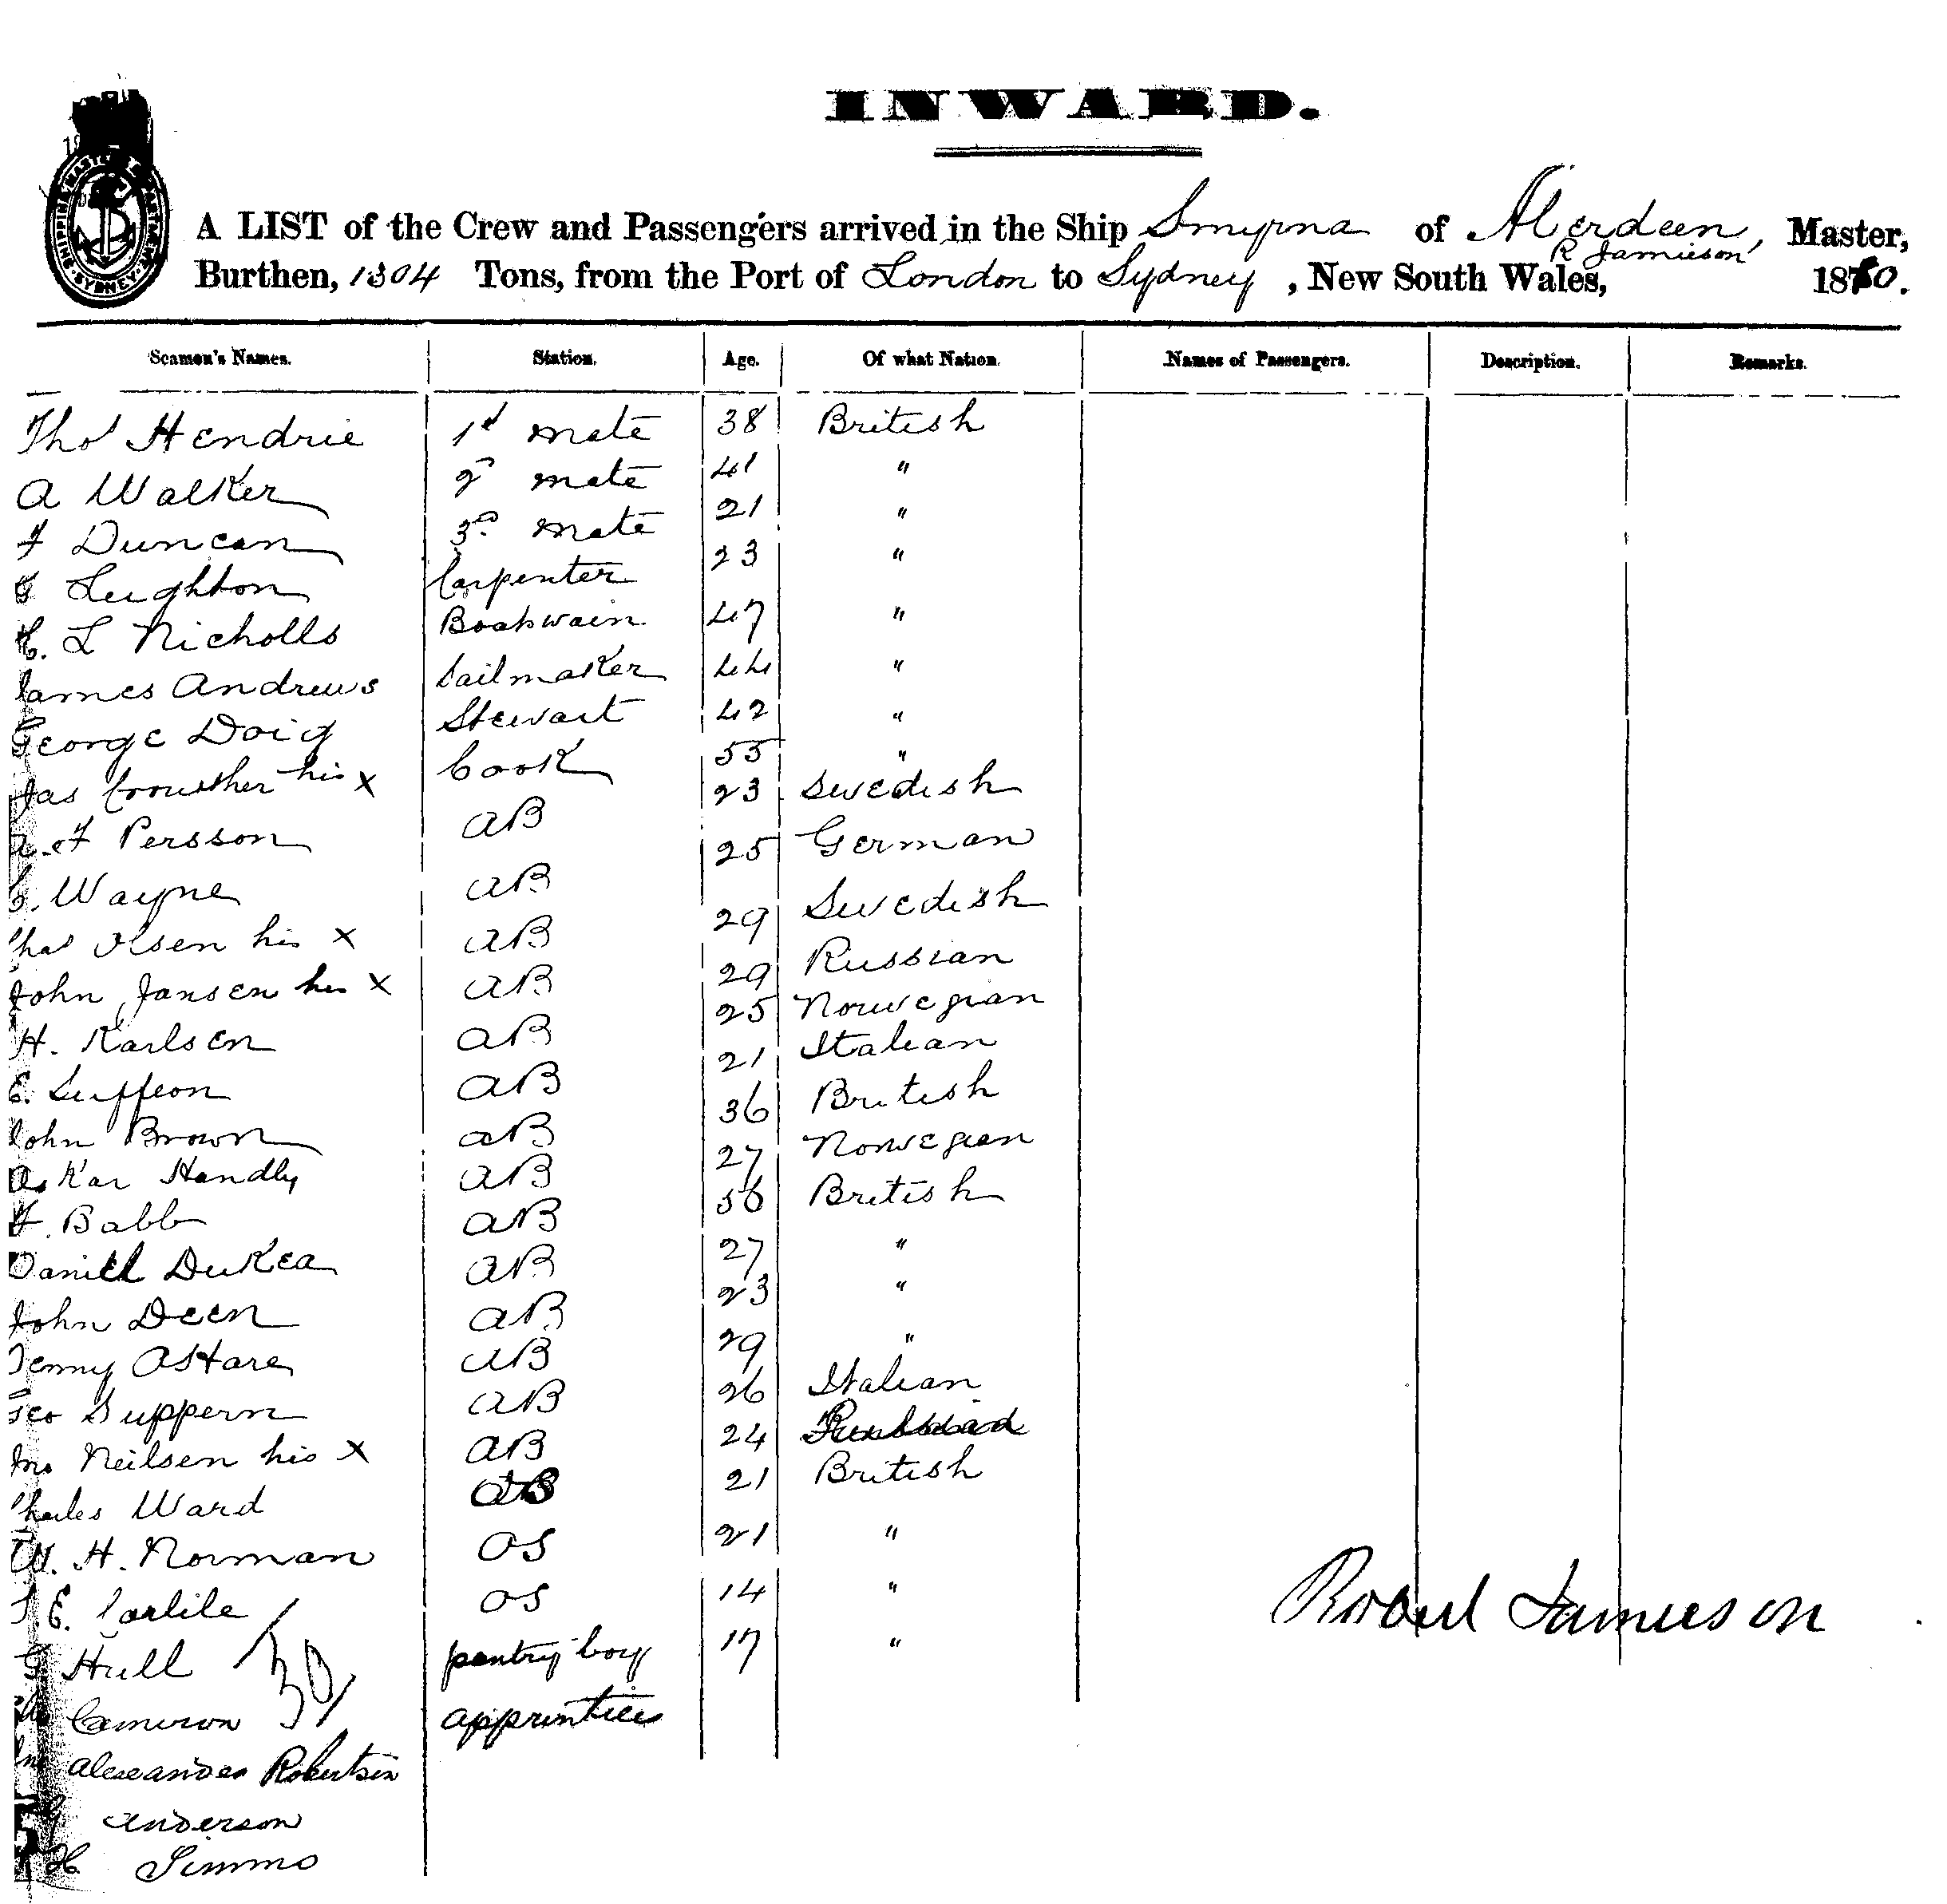 INWARD.
A LIST of the Crew and Passengers arrived in the Ship Smyrna of Aberdeen, R Jamieson Master,
Burthen, 1304 Tons, from the Port of London to Sydney, New South Wales, 1880.
Seamen's Names. Station. Age. Of what Nation. Names of Passengers. Description. Remarks.
Thos Hendrie 1st mate 38 British
A Walker 2d mate 41 "
F Duncan 3rd mate 21 "
G Leighton Carpenter 23 "
C. L Nicholls Boatswain 47 "
James Andrews Sailmaker 44 "
George Doig Stewart 42 "
Jas Crowther his x Cook 55 "
A. F Persson AB 23 Swedish
Wayne AB 25 German
Chas Olsen his x AB 29 Swedish
John Jansen his x AB 29 Russian
H. Karlsen AB 25 Norwegian
E. AB 21 Italian
John Brown AB 36 British
Oskar Handly AB 27 Norwegian
F. Babb AB 56 British
Daniel Dukea AB 27 "
John Deen AB 23 "
AB 29 "
Geo Suppern AB 26 Italian
Jno Neilsen his x AB 24
Charles Ward AB 21 British
W. H. Norman OS 21 "
E. Carlile OS 14 "
G Hull pantry boy 17 "
Cameron apprentices
Alexander Robertson
Anderson
H Simms
30
Robert Jamieson
SHIPPING MASTER'S DEPARTMENT SYDNEY